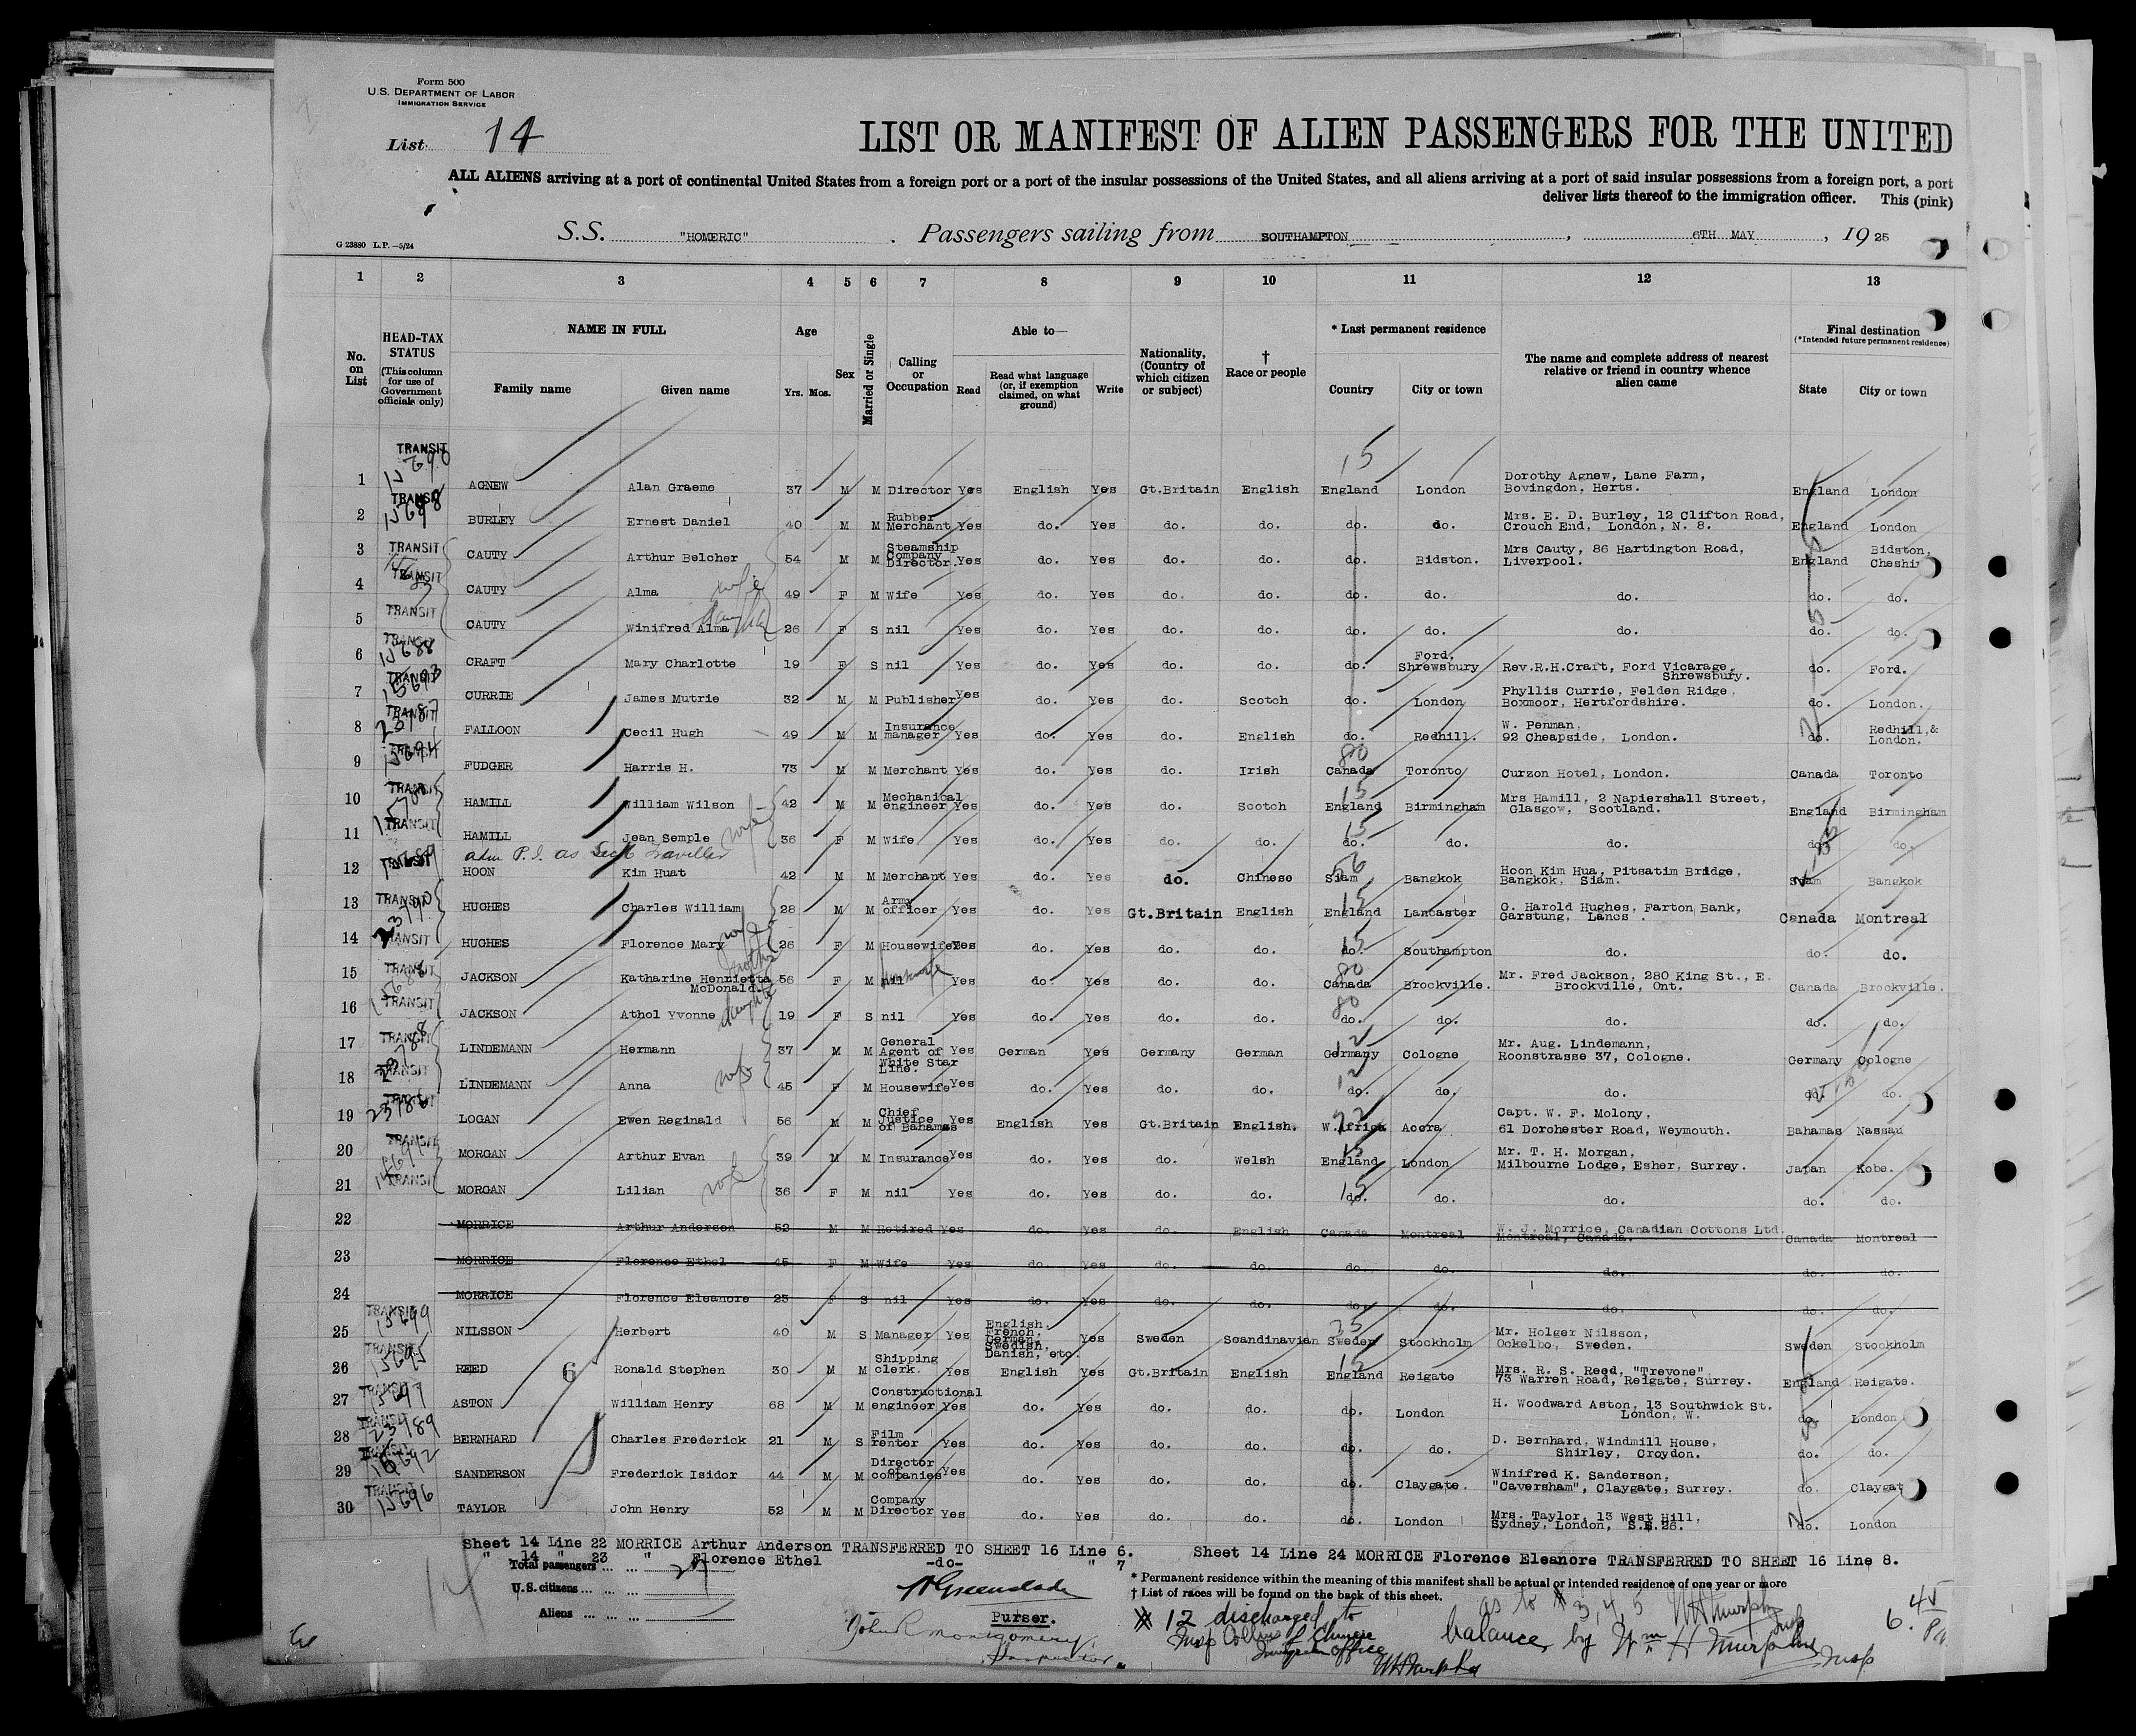 Form 500
U.S. DEPARTMENT OF LABOR
IMMIGRATION SERVICE
List 14
LIST OR MANIFEST OF ALIEN PASSENGERS FOR THE UNITED
ALL ALIENS arriving at a port of continental United States from a foreign port or a port of the insular possessions of the United States, and all aliens arriving at a port of said insular possessions from a foreign port, a port
deliver lists thereof to the immigration officer. This (pink)
G 23880 L.P.—5/24
S.S. "HOMERIC" . Passengers sailing from SOUTHAMPTON , 6TH MAY , 19 25
1 2 3 4 5 6 7 8 9 10 11 12 13
No. on List
HEAD-TAX STATUS (This column for use of Government officials only)
NAME IN FULL
Family name Given name
Age
Yrs. Mos.
Sex
Married or Single
Calling or Occupation
Able to—
Read
Read what language (or, if exemption claimed, on what ground)
Write
Nationality, (Country of which citizen or subject)
† Race or people
* Last permanent residence
Country City or town
The name and complete address of nearest relative or friend in country whence alien came
Final destination
(*Intended future permanent residence)
State City or town
1 TRANSIT 15690 AGNEW Alan Graeme 37 M M Director Yes English Yes Gt.Britain English 15 England London Dorothy Agnew, Lane Farm, Bovingdon, Herts. England London
2 TRANSIT BURLEY Ernest Daniel 40 M M Rubber Merchant Yes do. Yes do. do. do. do. Mrs. E. D. Burley, 12 Clifton Road, Crouch End, London, N. 8. England London
3 TRANSIT CAUTY Arthur Belcher 54 M M Steamship Company Director. Yes do. Yes do. do. do. Bidston. Mrs Cauty, 86 Hartington Road, Liverpool. England Bidston, Cheshir
4 TRANSIT CAUTY Alma wife 49 F M Wife Yes do. Yes do. do. do. do. do. do. do.
5 TRANSIT CAUTY Winifred Alma 26 F S nil Yes do. Yes do. do. do. do. do. do. do.
6 TRANSIT 15688 CRAFT Mary Charlotte 19 F S nil Yes do. Yes do. do. do. Ford, Shrewsbury Rev.R.H.Craft, Ford Vicarage, Shrewsbury. do. Ford.
7 TRANSIT 15693 CURRIE James Mutrie 32 M M Publisher Yes do. Yes do. Scotch do. London Phyllis Currie, Felden Ridge, Boxmoor, Hertfordshire. do. London.
8 TRANSIT 23787 FALLOON Cecil Hugh 49 M M Insurance manager Yes do. Yes do. English do. Redhill. W. Penman, 92 Cheapside, London. do. Redhill,& London.
9 TRANSIT 15694 FUDGER Harris H. 73 M M Merchant Yes do. Yes do. Irish 80 Canada Toronto Curzon Hotel, London. Canada Toronto
10 TRANSIT HAMILL William Wilson 42 M M Mechanical engineer Yes do. Yes do. Scotch 15 England Birmingham Mrs Hamill, 2 Napiershall Street, Glasgow, Scotland. England Birmingham
11 TRANSIT HAMILL Jean Semple wife 36 F M Wife Yes do. Yes do. do. 15 do. do. do. do. do.
adm P.I. as Sec 6 traveller
12 TRANSIT 15689 HOON Kim Huat 42 M M Merchant Yes do. Yes do. Chinese 56 Siam Bangkok Hoon Kim Hua, Pitsatim Bridge, Bangkok, Siam. Siam Bangkok
13 TRANSIT 23790 HUGHES Charles William 28 M M Army officer Yes do. Yes Gt.Britain English 15 England Lancaster G. Harold Hughes, Farton Bank, Garstung, Lancs . Canada Montreal
14 TRANSIT HUGHES Florence Mary wife 26 F M Housewife Yes do. Yes do. do. 15 do. Southampton do. do. do.
15 TRANSIT JACKSON Katharine Henrietta McDonald. mother 56 F M nil housewife Yes do. Yes do. do. 80 Canada Brockville. Mr. Fred Jackson, 280 King St., E. Brockville, Ont. Canada Brockville.
16 TRANSIT JACKSON Athol Yvonne daughter 19 F S nil Yes do. Yes do. do. 80 do. do. do. do. do.
17 TRANSIT 23788 LINDEMANN Hermann 37 M M General Agent of White Star Line. Yes German Yes Germany German 12 Germany Cologne Mr. Aug. Lindemann, Roonstrasse 37, Cologne. Germany Cologne
18 TRANSIT LINDEMANN Anna wife 45 F M Housewife Yes do. Yes do. do. 12 do. do. do. do. do.
19 TRANSIT 23786 LOGAN Ewen Reginald 56 M M Chief Justice of Bahamas Yes English Yes Gt.Britain English. W.Africa Accra Capt. W. F. Molony, 61 Dorchester Road, Weymouth. Bahamas Nassau
20 TRANSIT MORGAN Arthur Evan 39 M M Insurance Yes do. Yes do. Welsh 15 England London Mr. T. H. Morgan, Milbourne Lodge, Esher, Surrey. Japan Kobe.
21 TRANSIT MORGAN Lilian wife 36 F M nil Yes do. Yes do. do. 15 do. do. do. do. do.
22 MORRICE Arthur Anderson 52 M M Retired Yes do. Yes do. English Canada Montreal W. J. Morrice, Canadian Cottons Ltd. Montreal, Canada. Canada Montreal
23 MORRICE Florence Ethel 45 F M Wife Yes do. Yes do. do. do. do. do. do. do.
24 MORRICE Florence Eleanore 23 F S nil Yes do. Yes do. do. do. do. do. do. do.
25 TRANSIT 15699 NILSSON Herbert 40 M S Manager Yes English, French, German, Swedish, Danish, etc. Yes Sweden Scandinavian 35 Sweden Stockholm Mr. Holger Nilsson, Ockelbo, Sweden. Sweden Stockholm
26 TRANSIT 15695 REED 6 Ronald Stephen 30 M M Shipping clerk. Yes English Yes Gt.Britain English England Reigate Mrs. R. S. Reed, "Trevone" 73 Warren Road, Reigate, Surrey. England Reigate.
27 TRANSIT 15697 ASTON William Henry 68 M M Constructional engineer Yes do. Yes do. do. do. London H. Woodward Aston, 13 Southwick St. London, W. do. London
28 TRANSIT 23789 BERNHARD Charles Frederick 21 M S Film renter Yes do. Yes do. do. do. do. D. Bernhard, Windmill House, Shirley, Croydon. do. do.
29 TRANSIT 15692 SANDERSON Frederick Isidor 44 M M Director of companies Yes do. Yes do. do. do. Claygate. Winifred K. Sanderson, "Caversham", Claygate, Surrey. do. Claygat
30 TRANSIT 15696 TAYLOR John Henry 52 M M Company Director Yes do. Yes do. do. do. London Mrs. Taylor, 13 West Hill, Sydney, London, S.E.26. do. London
Sheet 14 Line 22 MORRICE Arthur Anderson TRANSFERRED TO SHEET 16 Line 6. Sheet 14 Line 24 MORRICE Florence Eleanore TRANSFERRED TO SHEET 16 Line 8.
" 14 " 23 " Florence Ethel -do- " 7
Total passengers ... ... 27
U.S. citizens ... ... ...
Aliens ... ... ...
14
Purser.
John R Montgomery
Inspector.
* Permanent residence within the meaning of this manifest shall be actual or intended residence of one year or more
† List of races will be found on the back of this sheet.
# 12 discharged to
Insp Collins of Chinese
Immigration office
WH Murphy
as to # 3, 4, 5 WH Murphy Insp
balance by Wm H Murphy Insp
6.45 P.M.